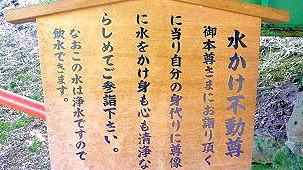 水かけ不動尊
御本尊さまにお詣り頂く
に当り自分の身代りに尊像
に水をかけ身も心も清浄な
らしめてご参詣下さい。
なおこの水は浄水ですので
飲水できます。